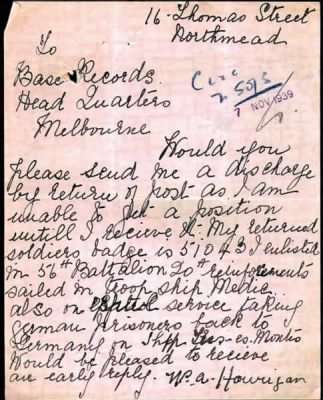 16 Thomas Street
Northmead
To
Base Records.
Head Quarters
Melbourne
7 NOV 1939
Would you
please send me a discharge
by return of post as I am
unable to get a position
untill I recieve it. My returned
soldiers badge is 51043 I enlisted
in 56th Battalion 20th reinforcements
sailed in Troop ship Medic
also on service taking
German prisoners back to
Germany on Ship
Would be pleased to recieve
an early reply. W. A. Howigan